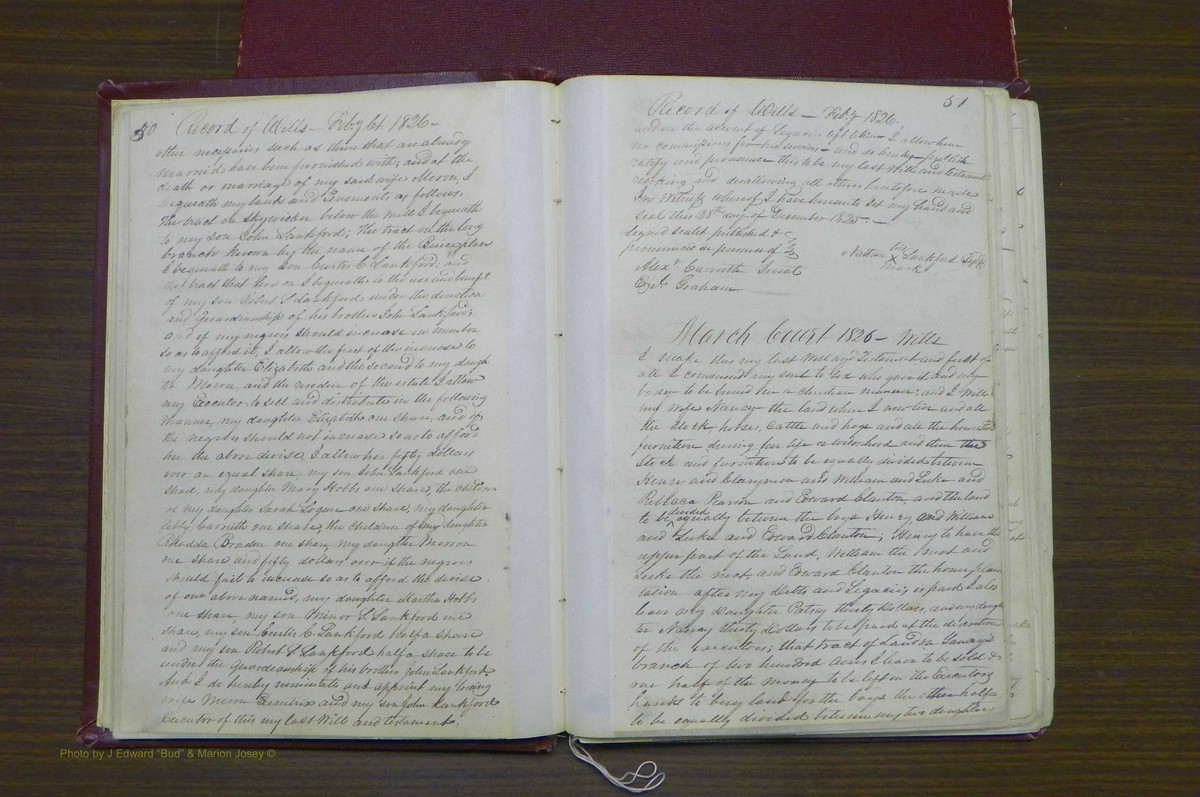 50 Record of Wills — Feby Ct 1826 —
other necessaries such as them that are already
married have been furnished with; and at the
death or marriage of my said wife Meron, I
bequeath my lands and tenements as follows,
The tract on below the mill I bequeath
to my son John Lankford; The tract on the long
branch known by the name of the place
I bequeath to my son Curtis C Lankford; and
that tract that live on I bequeath to the use and benefit
of my son Robert S Lankford under the direction
and Guardianship of his brother John Lankford;
and if my negroes should increase in number
so as to afford it, I allow the first of the increase to
my daughter Elizabeth and the second to my daugh
ter Meron, and the residue of the estate I allow
my Executor to sell and distribute in the following
manner, my daughter Elizabeth one share, and if
the negroes should not increase so as to afford
her the above devise I allow her fifty dollars
over an equal share, my son John Lankford one
share, my daughter Mary Hobbs one share, the children
of my daughter Sarah Logan one share, my daughter
Carruth one share, the children of my daughter
Rhodda Braden one share, my daughter Merron
one share and fifty dollars over if the negroes
should fail to increase so as to afford the devise
of one above named, my daughter Martha Hobbs
one share, my son Minor S. Lankford one
share, my son Curtis C. Lankford half a share
and my son Robert S Lankford half a share to be
under the Guardianship of his brother John Lankford.
And I do hereby nominate and appoint my loving
wife Meron Executrix and my son John Lankford
Executor of this my last Will and testament,
Record of Wills — Feby 1826. 51
and on the account of Legacies left to him I allow him
no commissions for his services — and do hereby publish
ratify and pronounce this to be my last Will and testament
revoking and disallowing all others heretofore made
In witness whereof I have hereunto set my hand and
seal this 28th day of December 1825 —
Signed sealed published &
pronounced in presence of
Nathan his X mark Lankford
Alexr Carruth Jurat
Graham
March Court 1826 — Wills
I make this my last Will and Testament and first of
all I commend my soul to God who gave it and my
body to be buried in a christian manner; and I Will
my wife Nancy the land where I now live and all
the stock horses, cattle and hogs and all the household
furniture during her life or widowhood and then the
stock and furniture to be equally divided between
Henry and and William and Luke and
Rebecca Pearson and Edward Clanton and the land
to be divided equally between the boys Henry and William
and Luke and Edward Clanton; Henry to have the
upper part of the Land, William the next and
Luke the next, and Edward Clanton the home plan
tation after my debts and Legacies is paid I also
leave my daughter Patsey thirty dollars, and my daugh
ter Nancy thirty Dollars to be paid at the discretion
of the executors; that tract of Land on
branch of two hundred acres I leave to be sold &
one half of the money to be left in the Executors
hands to buy land for the boys the other half
to be equally divided between my two daughters
Photo by J Edward "Bud" & Marion Josey ©